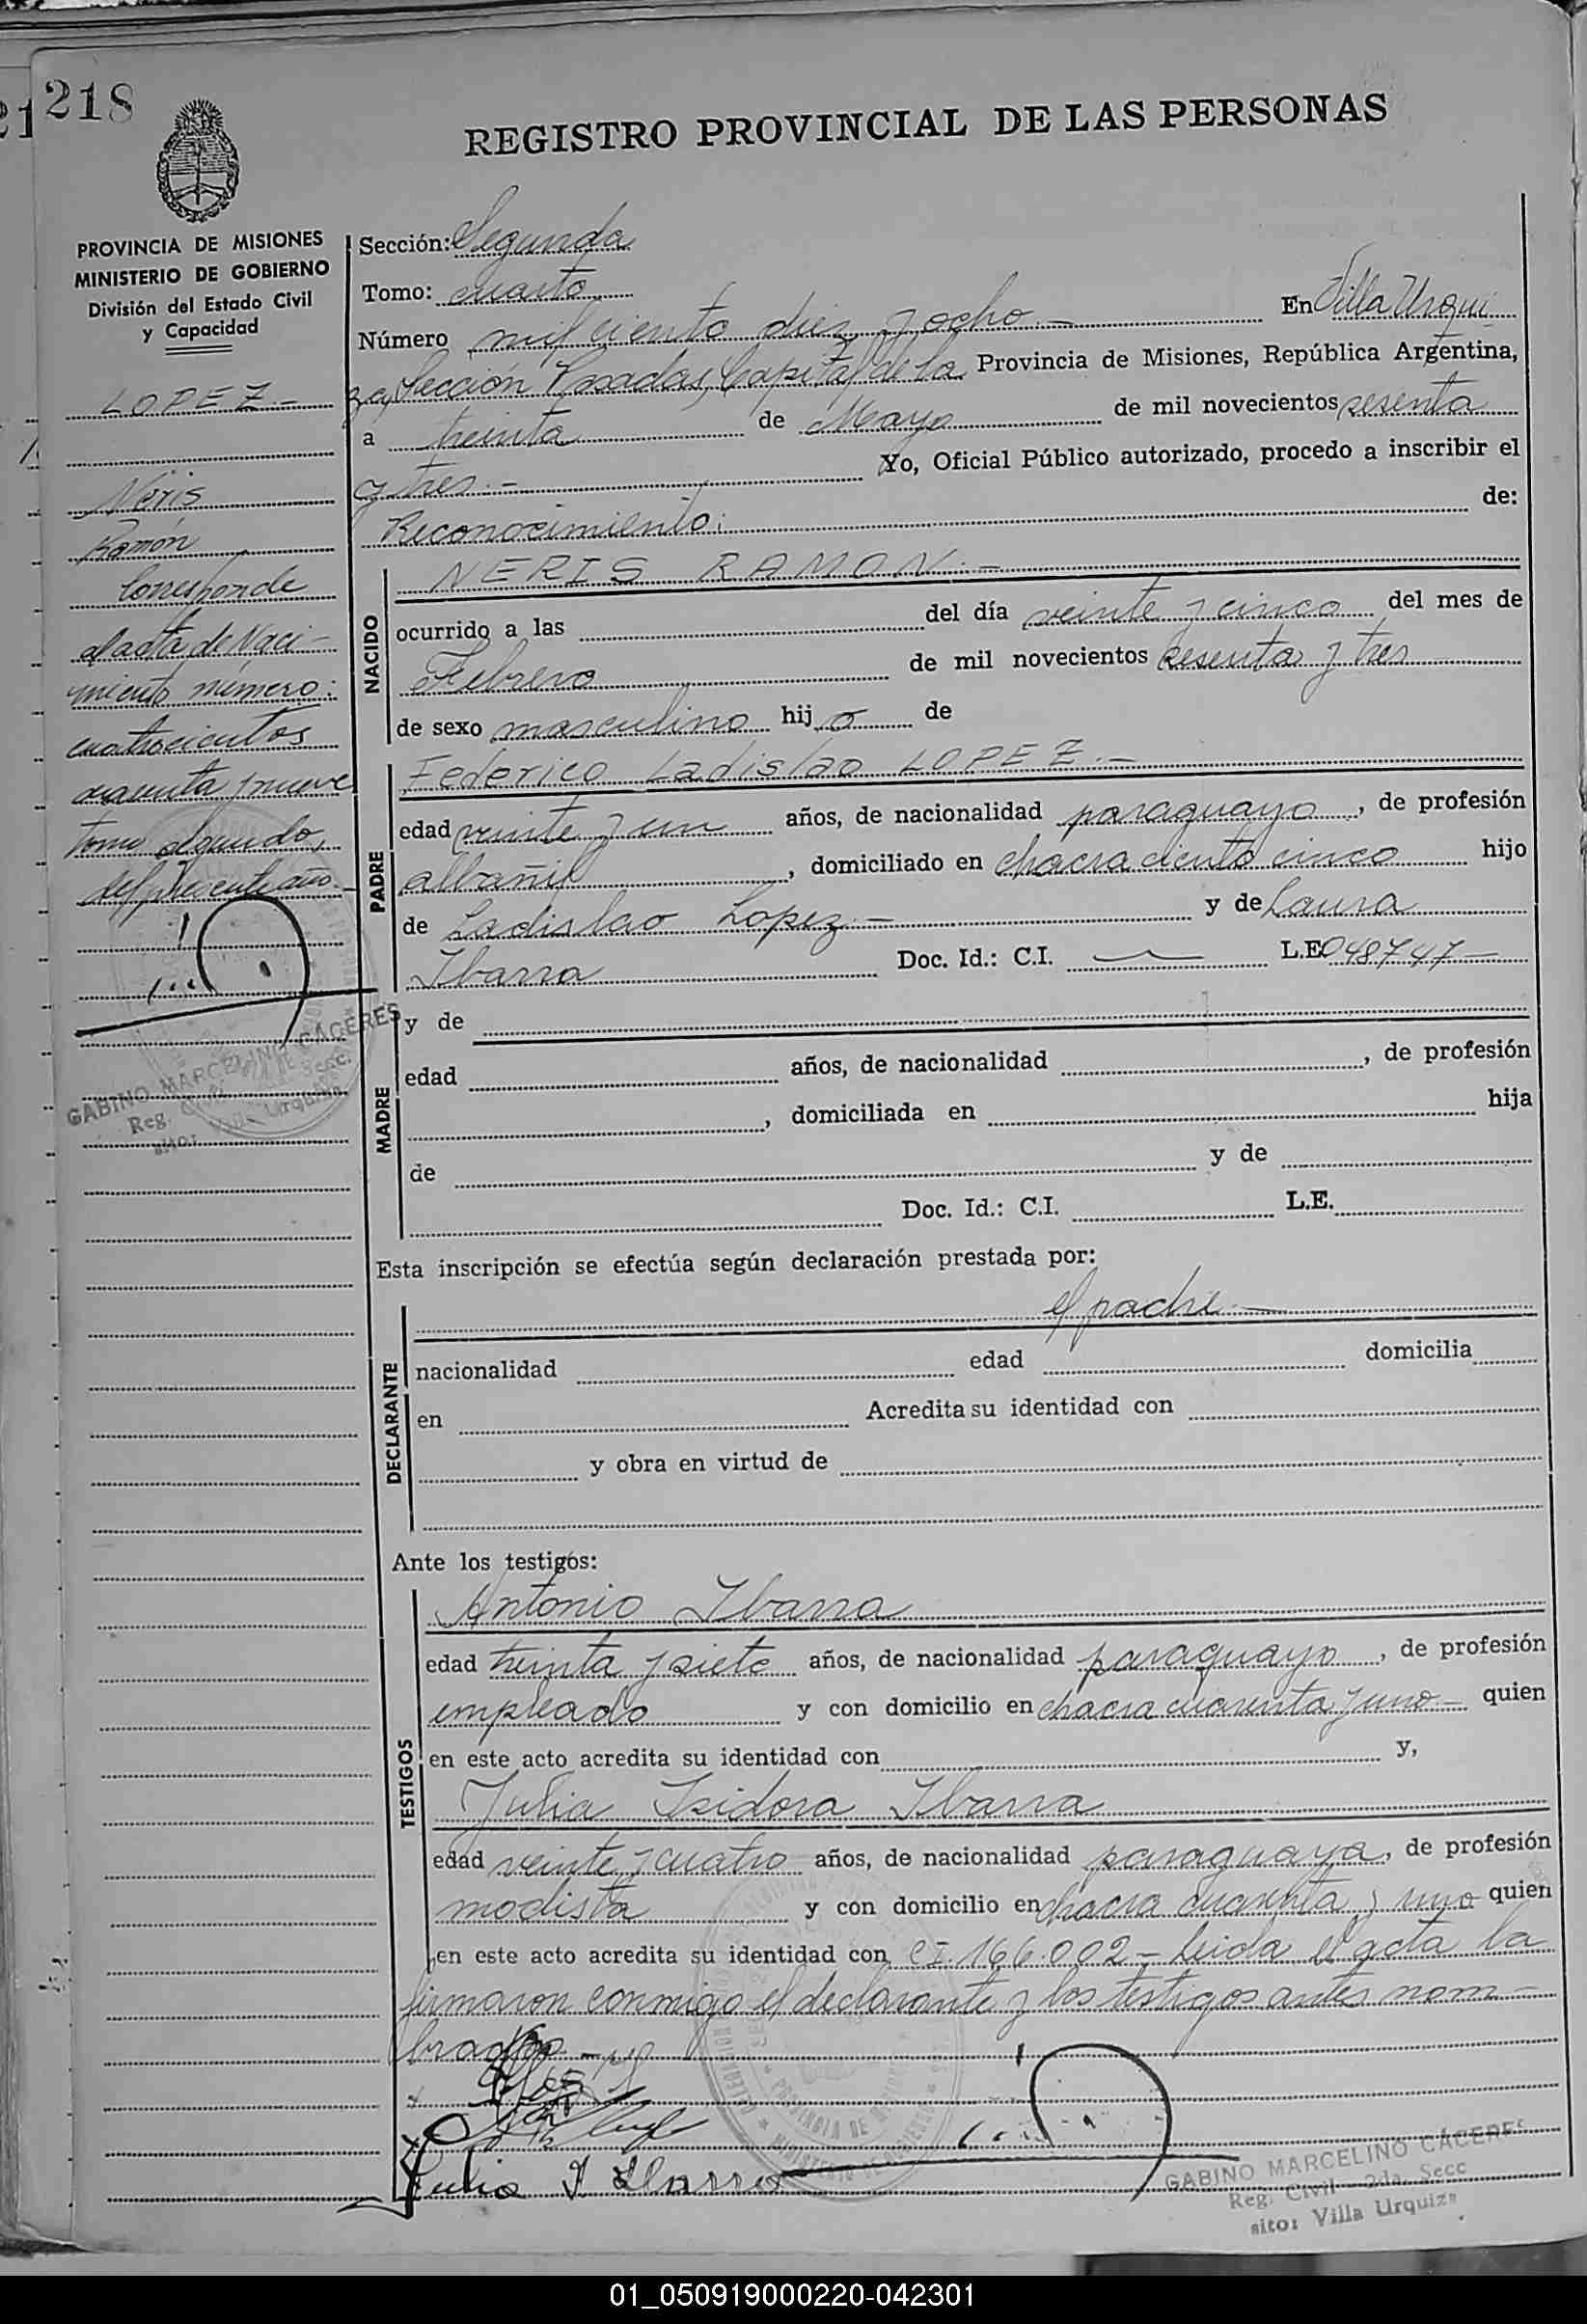 218
REGISTRO PROVINCIAL DE LAS PERSONAS
PROVINCIA DE MISIONES
MINISTERIO DE GOBIERNO
División del Estado Civil
y Capacidad
LOPEZ.-
Neris
Ramón
Corresponde
al acta de Naci-
miento número:
cuatrocientos
nueve
tomo segundo,
del presente año.-
GABINO MARCELINO CACERES
Reg. Civil Secc.
sito: Villa Urquiza
Sección: Segunda
Tomo: cuarto
Número mil ciento diez y ocho.- En Villa Urqui
za, Sección Posadas, Capital de la Provincia de Misiones, República Argentina,
a treinta de Mayo de mil novecientos sesenta
y tres.- Yo, Oficial Público autorizado, procedo a inscribir el
Reconocimiento: de:
NACIDO
NERIS RAMON.-
ocurrido a las del día veinte y cinco del mes de
Febrero de mil novecientos sesenta y tres
de sexo masculino hijo de
PADRE
Federico Ladislao LOPEZ.-
edad veinte y un años, de nacionalidad paraguayo, de profesión
albañil, domiciliado en chacra ciento cinco hijo
de Ladislao Lopez.- y de Laura
Ibarra Doc. Id.: C.I. — L.E. 048747-
MADRE
y de
edad años, de nacionalidad , de profesión
, domiciliada en hija
de y de
Doc. Id.: C.I. L.E.
Esta inscripción se efectúa según declaración prestada por:
DECLARANTE
el padre.-
nacionalidad edad domicilia
en Acredita su identidad con
y obra en virtud de
Ante los testigos:
TESTIGOS
Antonio Ibarra
edad treinta y siete años, de nacionalidad paraguayo, de profesión
empleado y con domicilio en chacra cuarenta y uno.- quien
en este acto acredita su identidad con y,
Julia Isidora Ibarra
edad veinte y cuatro años, de nacionalidad paraguaya, de profesión
modista y con domicilio en chacra cuarenta y uno quien
en este acto acredita su identidad con CI.166.002.- Leida el acta la
firmaron conmigo el declarante y los testigos antes nom-
brados.-
Julia I Ibarra
GABINO MARCELINO CACERES
Reg. Civil - 2da. Secc
sito: Villa Urquiza
01_050919000220-042301